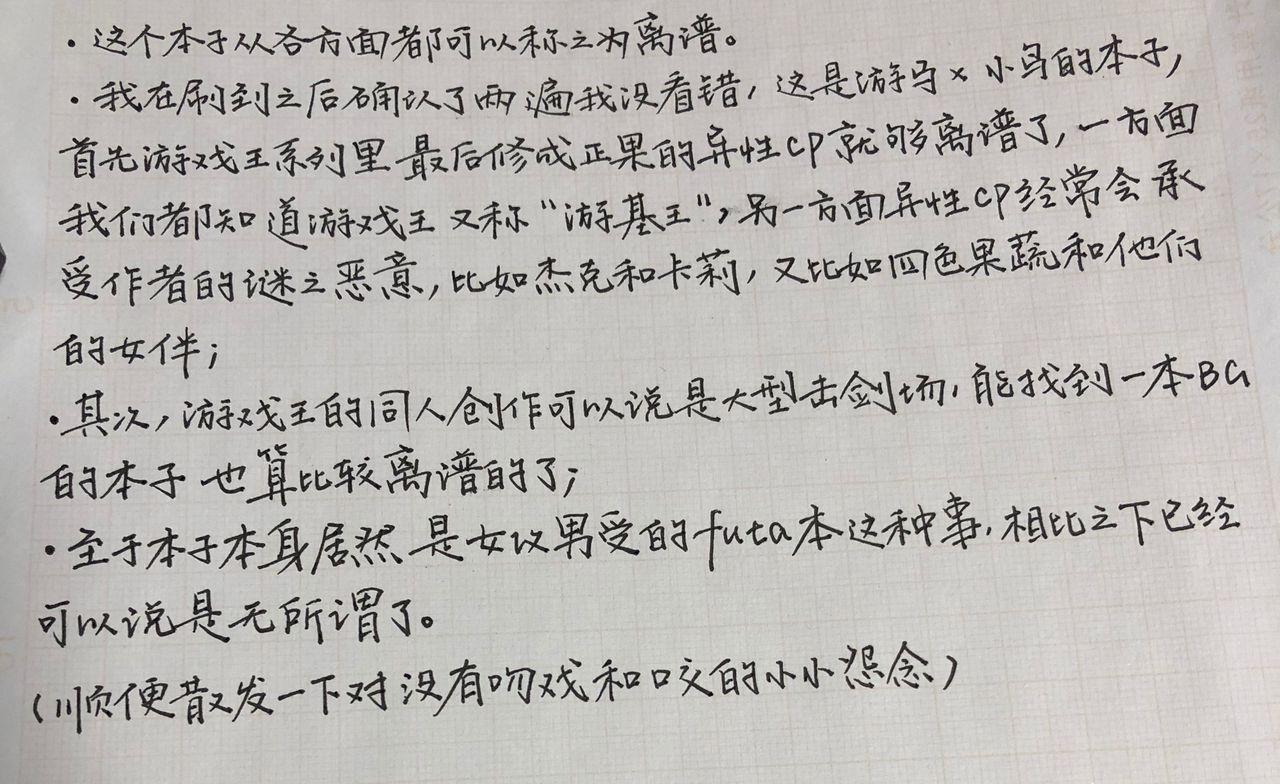 ·这个本子从各方面都可以称之为离谱。
·我在刷到之后确认了两遍我没看错，这是游马×小鸟的本子，
首先游戏王系列里最后修成正果的异性cp就够离谱了，一方面
我们都知道游戏王又称“游基王”，另一方面异性cp经常会承
受作者的谜之恶意，比如杰克和卡莉，又比如四色果蔬和他们
的女伴；
·其次，游戏王的同人创作可以说是大型击剑场，能找到一本BG
的本子也算比较离谱的了；
·至于本子本身居然是女攻男受的futa本这种事，相比之下已经
可以说是无所谓了。
（顺便散发一下对没有吻戏和口交的小小怨念）